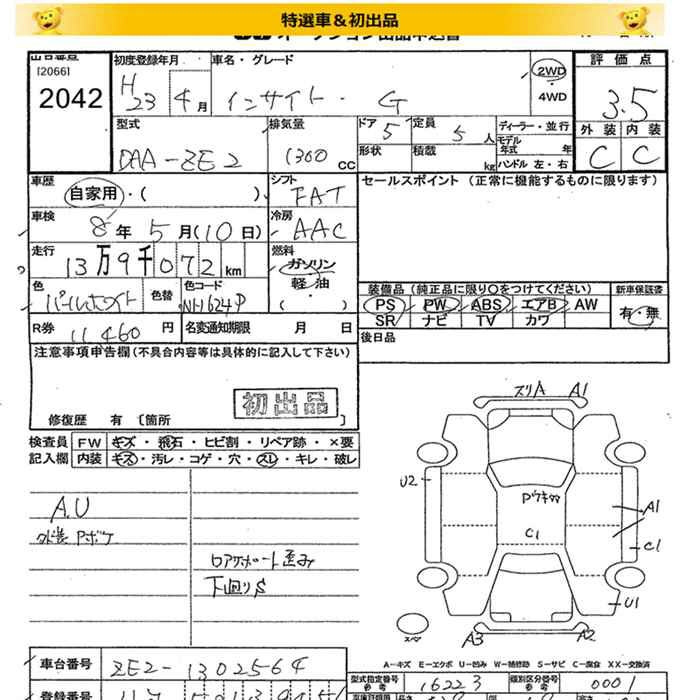 特選車＆初出品
出品番号
[2066]
2042
初度登録年月
H 23 4月
車名・グレード
インサイト・G
2WD
・
4WD
評価点
3.5
外装 内装
C C
型式
DAA-ZE2
排気量
1300 cc
ドア 5
定員 5 人
形状
積載 kg
ディーラー・並行
モデル年式 年
ハンドル 左・右
車歴
自家用・( )
シフト
FAT
セールスポイント (正常に機能するものに限ります)
車検
8年5月(10日)
冷房
AAC
走行
13万9千072km
燃料
ガソリン
軽・油
( )
色
パールホワイト
色替
色コード
NH624P
装備品 (純正品に限り○をつけてください)
新車保証書
PS PW ABS エアB AW
SR ナビ TV カワ
有・無
R券 11,460 円
名変通知期限 月 日
後日品
注意事項申告欄 (不具合内容等は具体的に記入して下さい)
初出品
修復歴 有 [箇所 ]
検査員 FW キズ・飛石・ヒビ割・リペア跡・×要
記入欄 内装 キズ・汚レ・コゲ・穴・スレ・キレ・破レ
A.U
外装Pボケ
ロアサポート歪み
下回りS
スリA A1
U2
Pウキズ
A1
C1
C1
U1
スペア
A3
A2
A-キズ E-エクボ U-凹み W-補修跡 S-サビ C-腐食 XX-交換済
車台番号 ZE2-1302564
型式指定番号 参考 16223
類別区分番号 参考 0001
登録番号